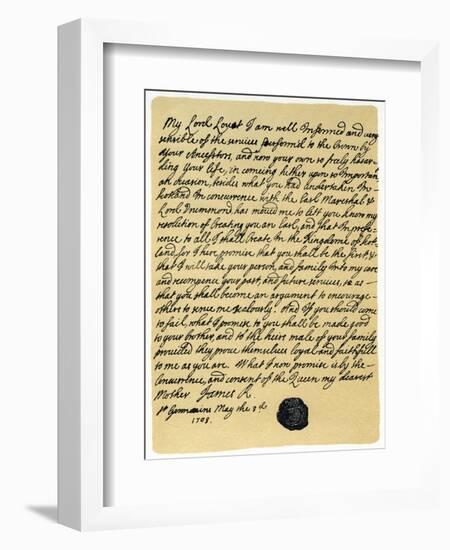 My Lord Lovat I am well Informed and very
sensible of the services performd to the Crown by
your Ancestors, and now your own so freely hazar-
ding your life, in comeing hither upon so Important
an occasion, besides what you had undertaken In
Scotland In concurrence with the Earl Mareshal &
Lord Drummond has moved me to lett you know my
resolution of Creating you an Earl, and that In prefe-
rence to all I shall Create In the Kingdome of Scot-
land, for I hier promise that you shall be the first, &
that I will take your person, and family Into my care
and recompence your past, and future services, so as-
that you shall become an argument to encourage-
others to serve me zealously. And If you should come
to fail, what I promise to you shall be made good
to your brother, and to the heirs male of your family
provided they prove themselves loyal and faithfull
to me as you are. What I now promise is by the-
Concurrence, and consent of the Queen my dearest
Mother James R.
St Germains May the 3d
1703.